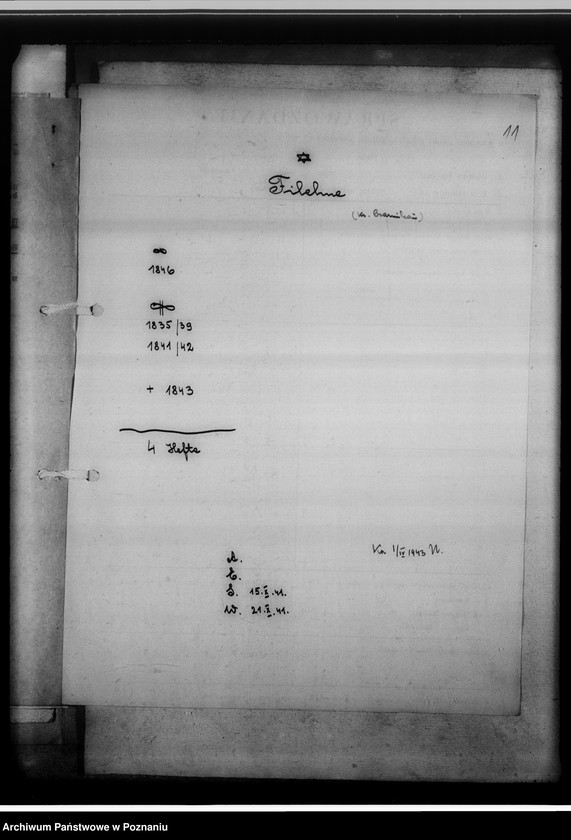 11
✡
Filehne
(Kr. Czarnikau)
∞
1846
1835/39
1841/42
+ 1843
4 Hefte
Kn 1/IV 1943 W.
A.
E.
S. 15.X.41.
W. 21.X.41.
Archiwum Państwowe w Poznaniu